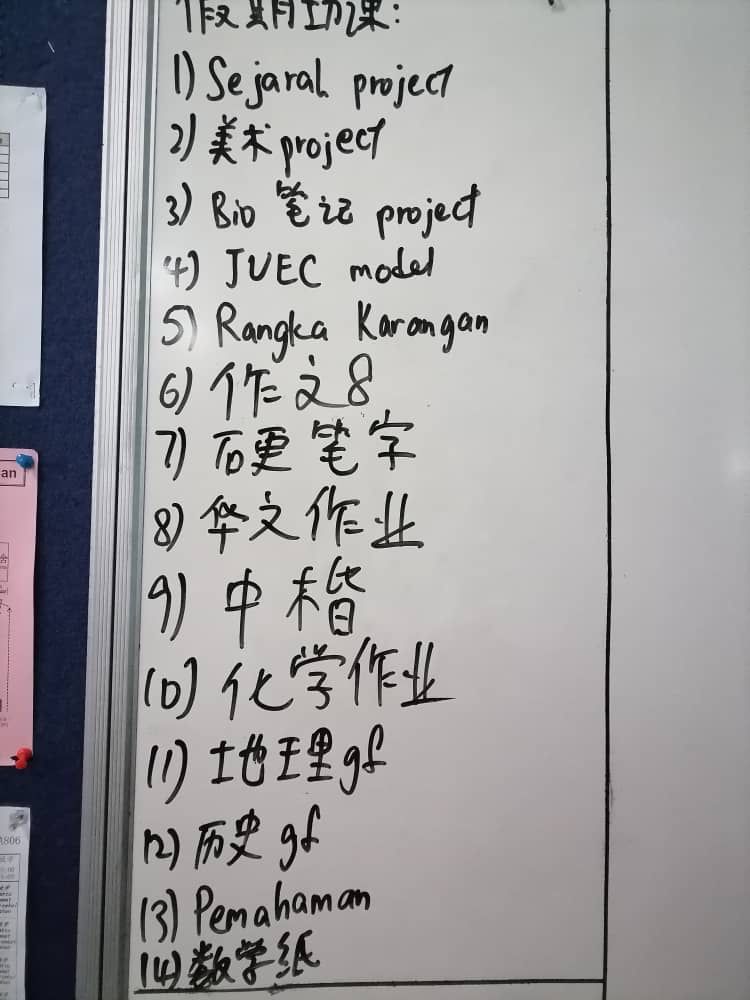 假期功课:
1) Sejarah project
2) 美术 project
3) Bio 笔记 project
4) JUEC model
5) Rangka Karangan
6) 作文8
7) 硬笔字
8) 华文作业
9) 中楷
10) 化学作业
11) 地理gf
12) 历史gf
13) Pemahaman
14) 数学纸
an
A806